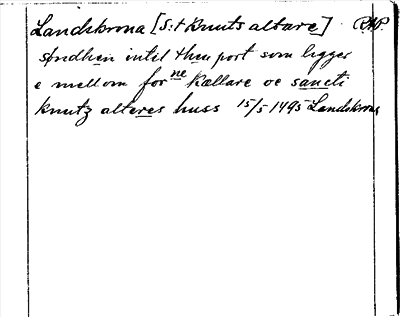 Landskrona [S:t Knuts altare] PNP.
søndhen intil then port som ligger
e mellom for ne Kællare oc sancti
knutz alteres huss 15/5 1495 Landskrona